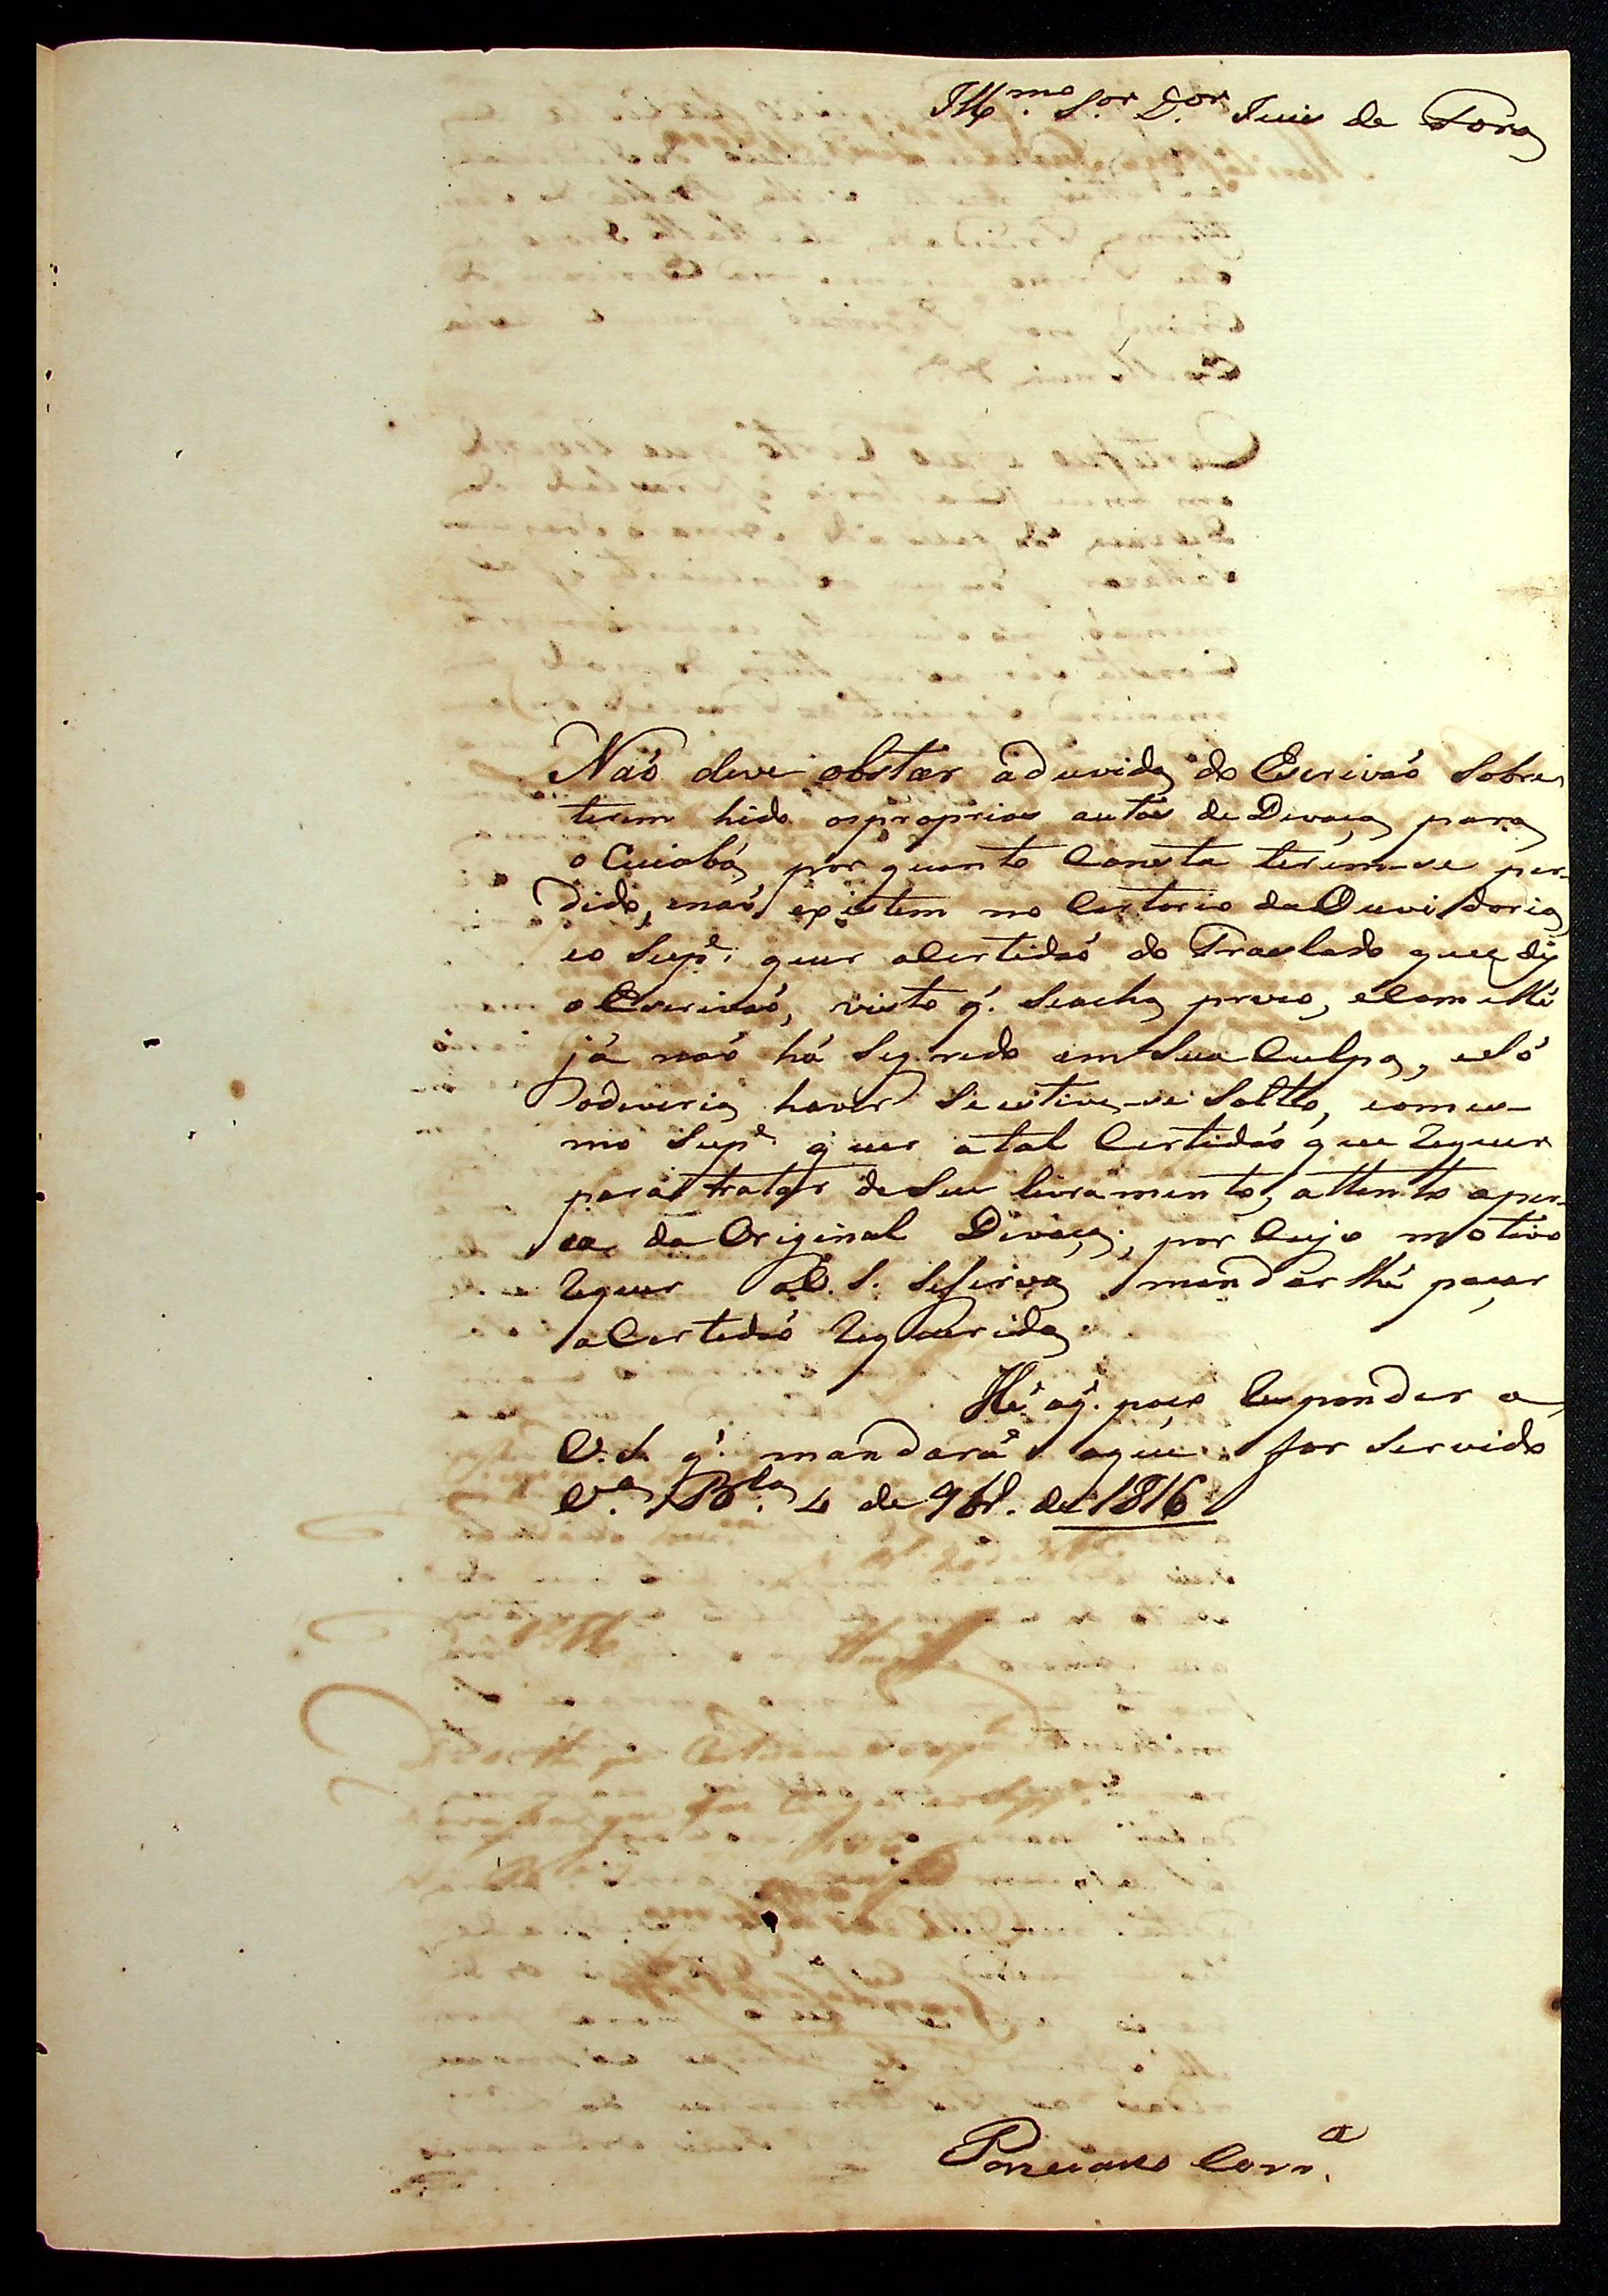 Illmo. Sor. Dor. Juis de Fora
Naõ deve obstar aduvida do Escrivaõ Sobre
terem hido osproprios autos de Devaça para
o Cuiabá, por quanto Consta terem-se per-
dido, enaõ existem no Cartorio da Ouvidoria,
eo Supe. quer aCertidaõ do Traslado que diz
oEscrivaõ, visto q. Seacha prezo, éComelle
já naõ há Segredo em Sua Culpa, eSó
odeveria haver Seestive-se Solto, eomes-
mo Supe. quer atal Certidaõ que requer
para tratar deSeu livramento, attento aper-
ca da Original Devaça; por Cujo motivo
requer aV. S. Sesirva mandarlhe paçar
aCertedaõ requerida.
Hé oq. poço responder a
V. S. q. mandará oque for Servido
Va. Bla. 4 de 9br. de 1816
Ponciano Corra.